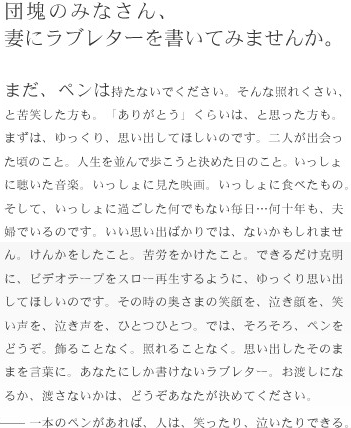 団塊のみなさん、
妻にラブレターを書いてみませんか。
まだ、ペンは持たないでください。そんな照れくさい、
と苦笑した方も。「ありがとう」くらいは、と思った方も。
まずは、ゆっくり、思い出してほしいのです。二人が出会っ
た頃のこと。人生を並んで歩こうと決めた日のこと。いっしょ
に聴いた音楽。いっしょに見た映画。いっしょに食べたもの。
そして、いっしょに過ごした何でもない毎日…何十年も、夫
婦でいるのです。いい思い出ばかりでは、ないかもしれませ
ん。けんかをしたこと。苦労をかけたこと。できるだけ克明
に、ビデオテープをスロー再生するように、ゆっくり思い出
してほしいのです。その時の奥さまの笑顔を、泣き顔を、笑
い声を、泣き声を、ひとつひとつ。では、そろそろ、ペンを
どうぞ。飾ることなく。照れることなく。思い出したそのま
まを言葉に。あなたにしか書けないラブレター。お渡しにな
るか、渡さないかは、どうぞあなたが決めてください。
―― 一本のペンがあれば、人は、笑ったり、泣いたりできる。